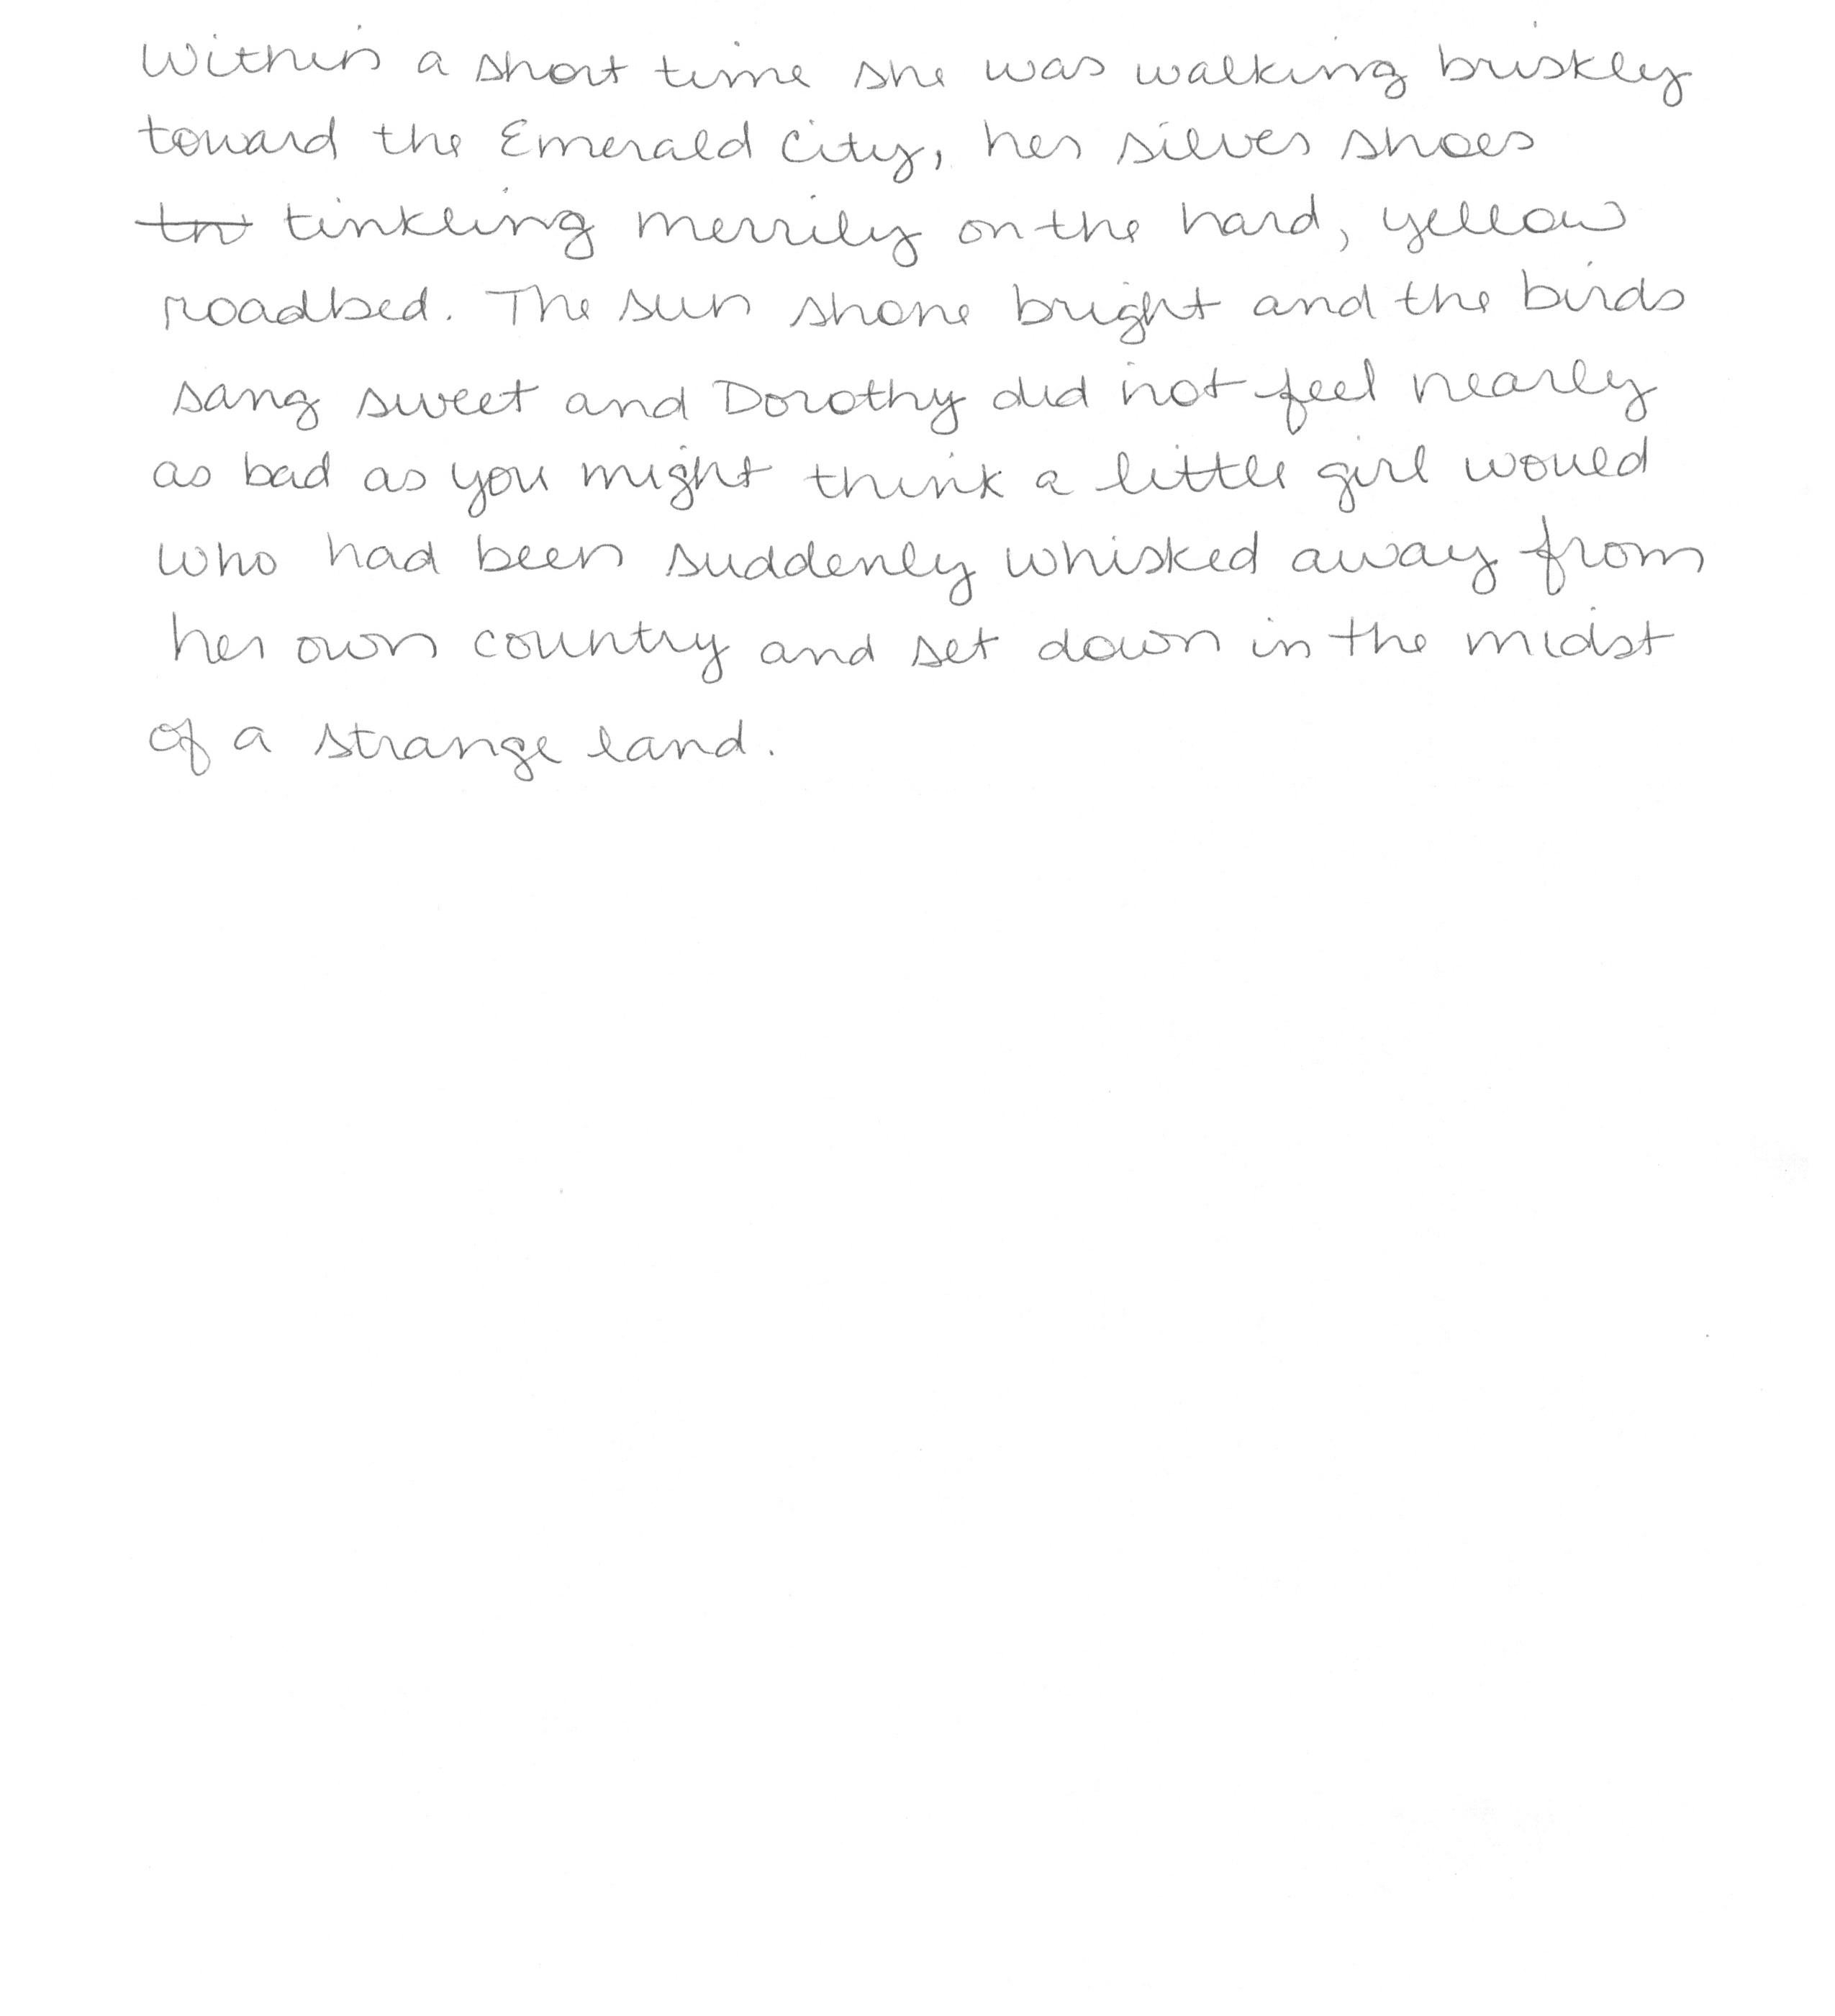 Within a short time she was walking briskly
toward the Emerald City, her silver shoes
tn tinkling merrily on the hard, yellow
roadbed. The sun shone bright and the birds
sang sweet and Dorothy did not feel nearly
as bad as you might think a little girl would
who had been suddenly whisked away from
her own country and set down in the midst
of a strange land.